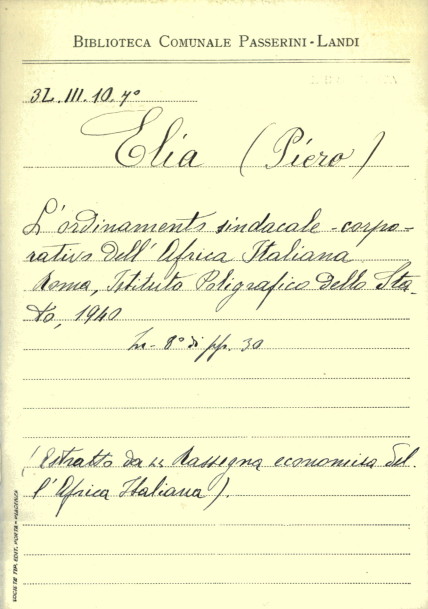 BIBLIOTECA COMUNALE PASSERINI-LANDI
3L.III.10.4º
Elia (Piero)
L'ordinamento sindacale-corpo-
rativo dell'Africa Italiana
Roma, Istituto Poligrafico dello Sta-
to, 1940
In-8º di pp. 30
(Estratto da "Rassegna economica del-
l'Africa Italiana).
SOCIETÀ TIP. EDIT. PORTA - PIACENZA